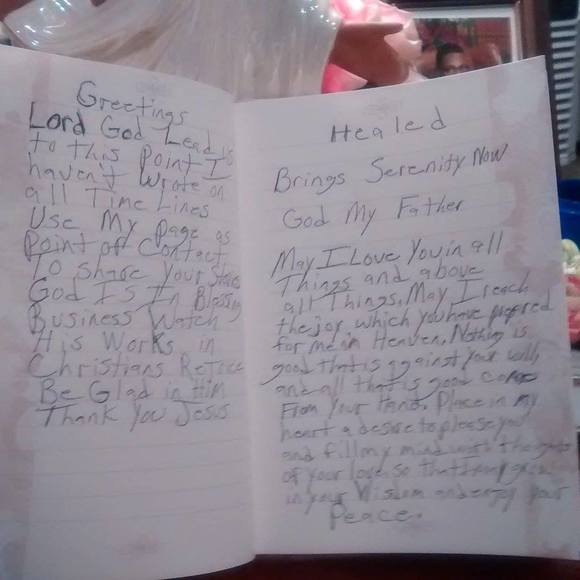 Greetings
Lord God Lead us
to this Point I
haven't wrote on
all Time Lines
Use My Page as
Point of Contact
To share Your Stories
God Is In Blessing
Business Watch
His Works in
Christians Rejoice
Be Glad in Him
Thank You Jesus
Healed
Brings Serenity Now
God My Father
May I Love You in all
Things and above
all Things. May I reach
the joy which you have prepared
for me in Heaven. Nothing is
good that is against your will,
and all that is good comes
From Your Hand. Place in my
heart a desire to please you
and fill my mind with thoughts
of your love, so that I may grow
in your Wisdom and enjoy your
Peace.